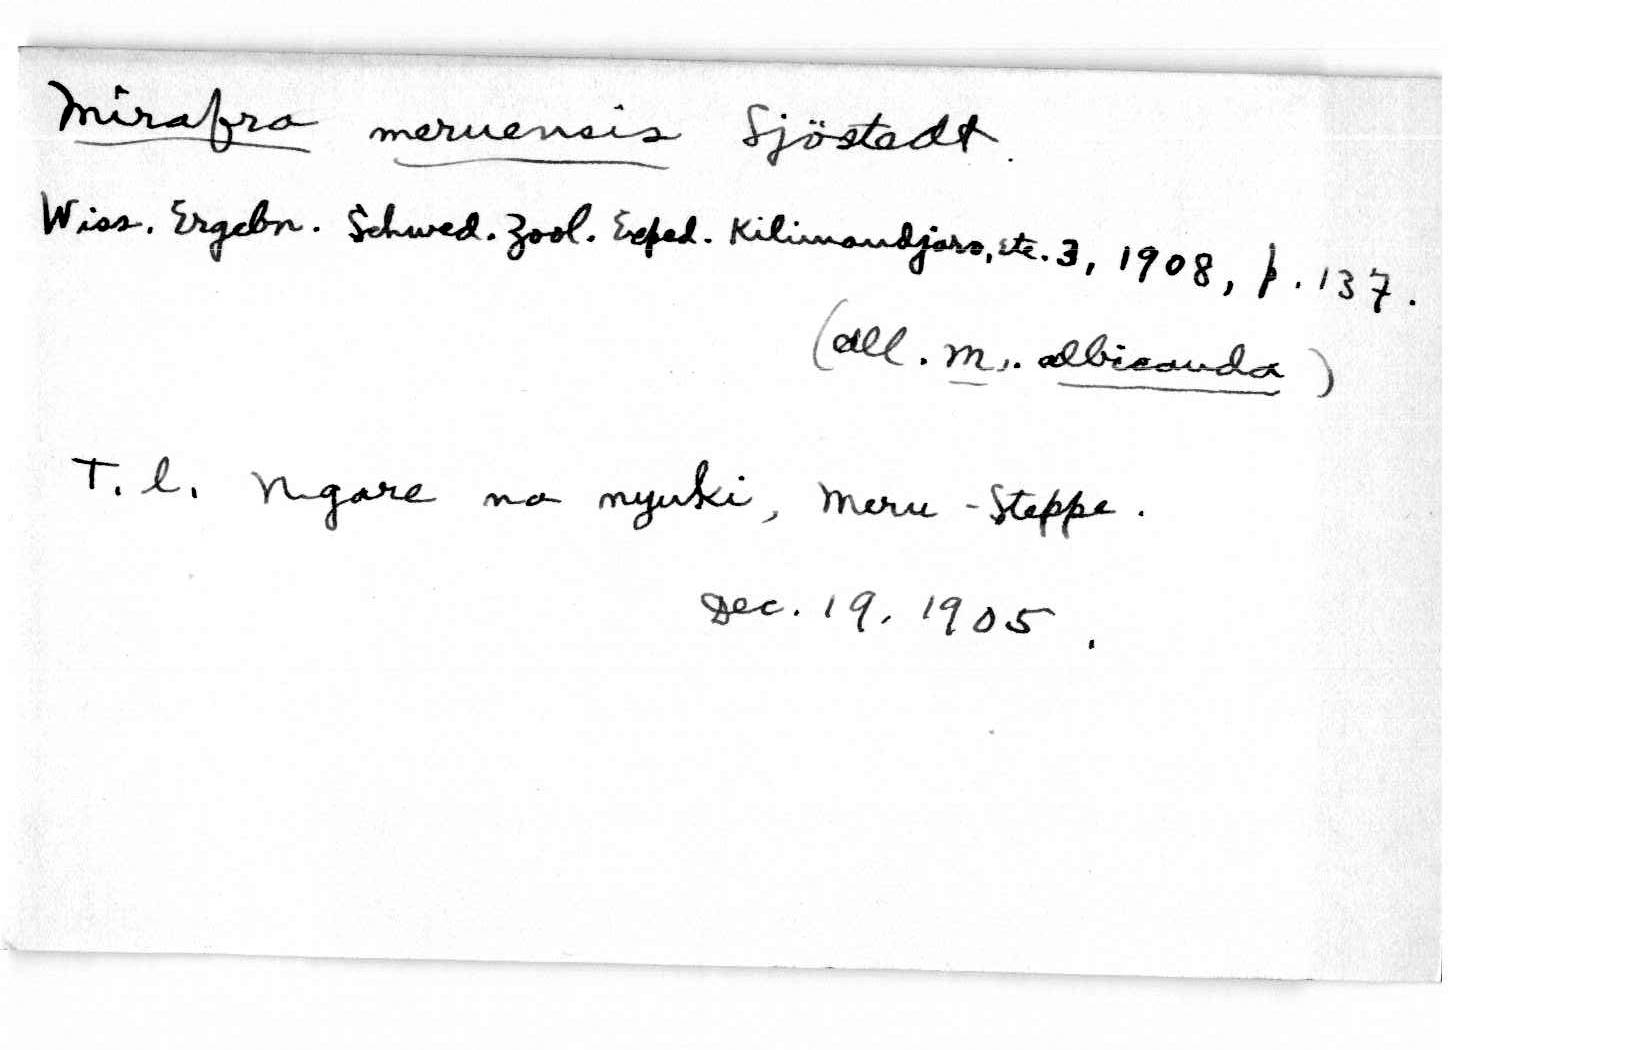 Mirafra meruensis Sjöstedt.
Wiss. Ergebn. Schwed. Zool. Exped. Kilimandjaro, etc. 3, 1908, p. 137.
(all. M. albicauda)
T. l. Ngare na nyuki, Meru-Steppe.
Dec. 19, 1905.